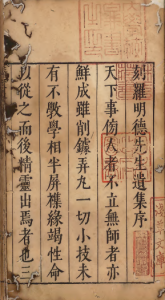 刻羅明德先生遺集序
天下事傍人者不立無師者亦
鮮成雖削鐻弄丸一切小技未
有不斆學相半屏檏緣竭性命
以從之而後精靈出焉者也三